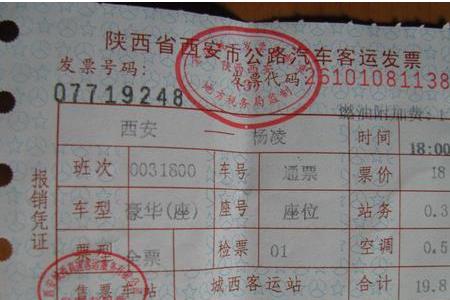 陕西省西安市公路汽车客运发票
发票号码: 发票代码 26101081138
07719248 燃油附加费:1
西安 — 杨凌 时间 18:00
班次 0031800 车号 通票 票价 18
车型 豪华(座) 座号 座位 站务 0.3
票型 全票 检票 01 空调 0.5
售票 车站 城西客运站 合计 19.8
报销凭证
地方税务局监制